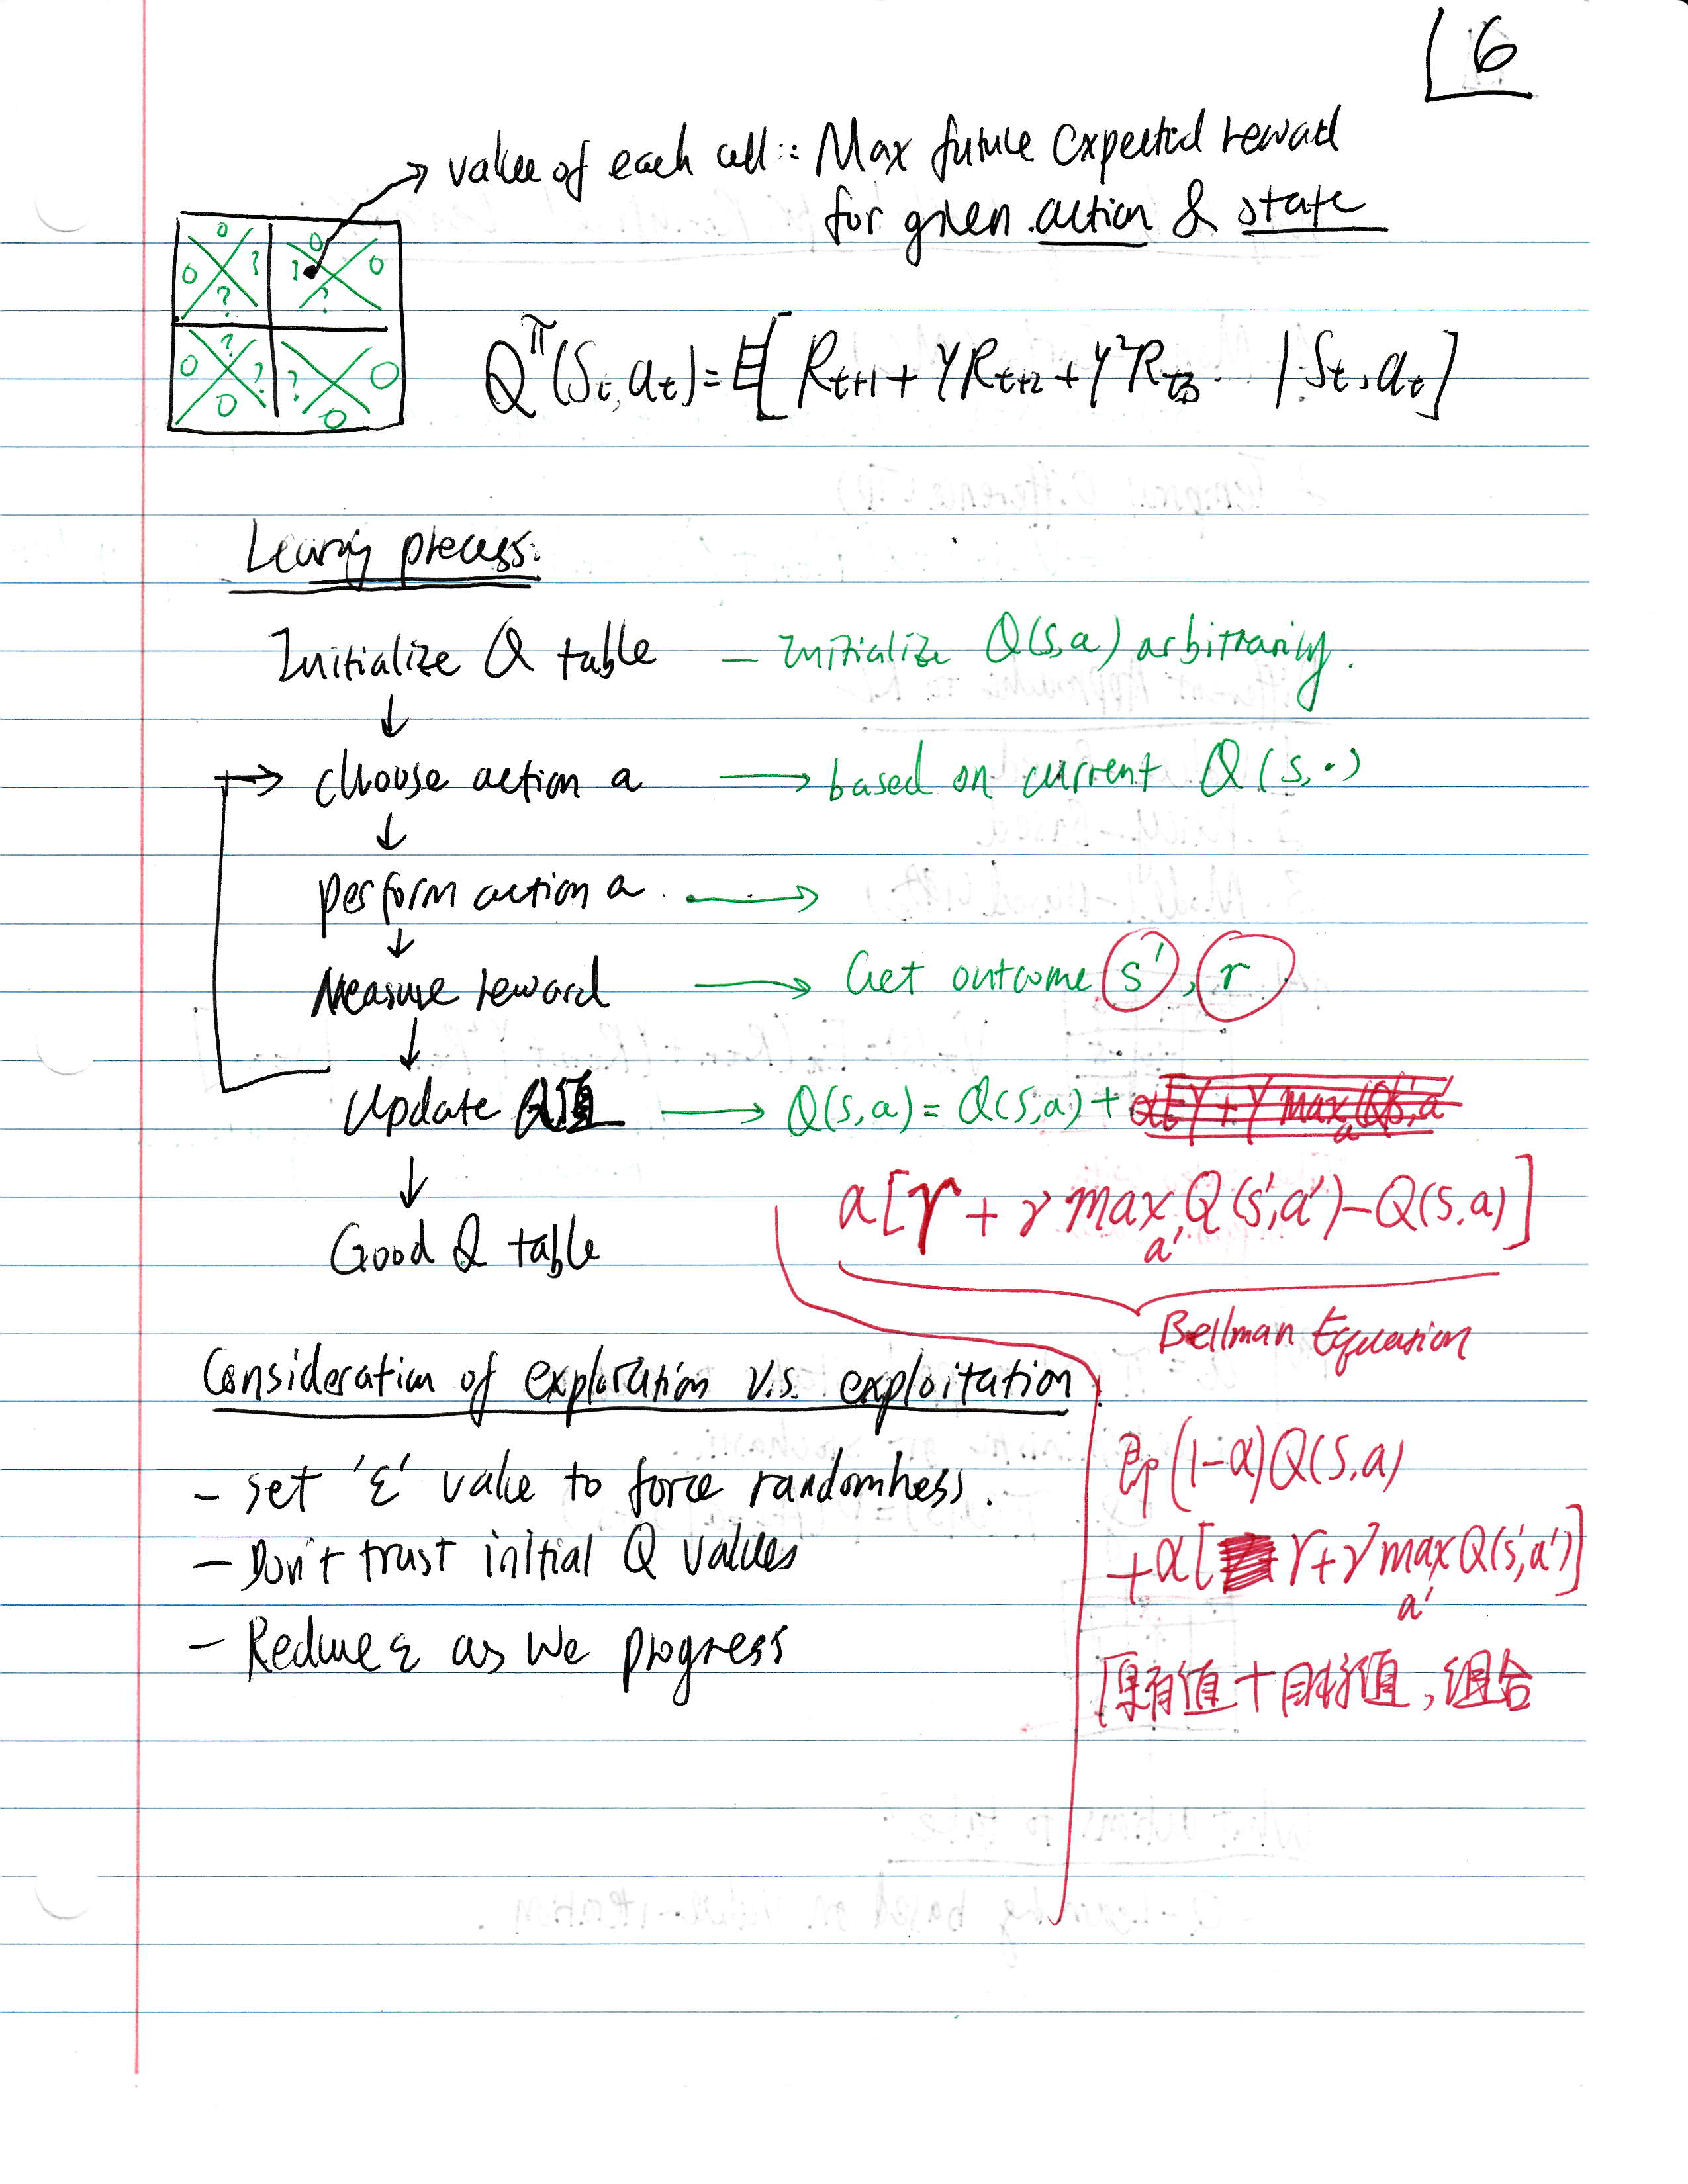 6
value of each cell :: Max future expected reward
for given action & state
0 0
0 ? ? 0
? ?
Q^π(St, at) = E[ Rt+1 + γRt+2 + γ²Rt+3 ... | St, at]
? 
0 ? ? 0
0 0
Learning process:
Initialize Q table — Initialize Q(s,a) arbitrarily.
↓
→ choose action a → based on current Q(s, ·)
↓
perform action a. →
↓
Measure reward → Get outcome s', r
↓
Update Q值 → Q(s,a) = Q(s,a) +
↓
α[r + γ max Q(s',a') - Q(s,a)]
a'
Good Q table
Bellman Equation
Consideration of exploration v.s. exploitation
- set 'ε' value to force randomness.
- Don't trust initial Q values
- Reduce ε as we progress
即 (1-α)Q(s,a)
+α[ r+γ max Q(s',a')]
a'
原有值+目标值,组合